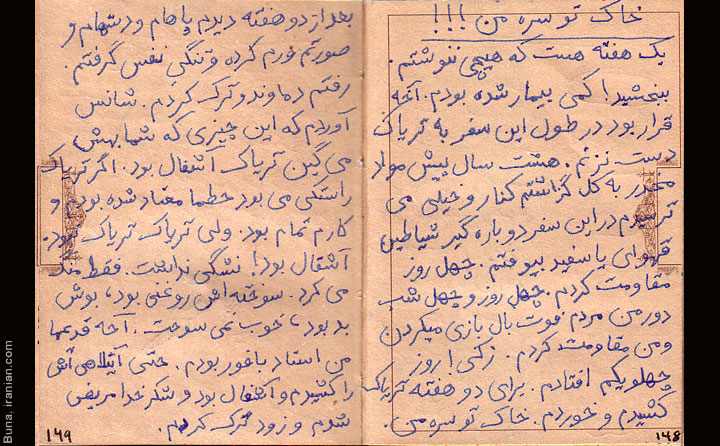 خاک تو سره من !!!
یک هفته هست که هیچی ننوشتم.
ببخشید! کمی بیمار شده بودم. آخه
قرار بود در طول این سفر به تریاک
دست نزنم. هشت سال پیش مواد
مخدر به کل گذاشتم کنار و خیلی می
ترسیدم در این سفر دوباره گیر شیاطین
قهوه‌ای یا سفید بیوفتم. چهل روز
مقاومت کردم. چهل روز و چهل شب
دور من مردم فوت بال بازی میکردن
و من مقاومت کردم. زکی! روز
چهلویکم افتادم. برای دو هفته تریاک
کشیدم و خوردم. خاک تو سره من.
۱۴۸
بعد از دو هفته دیدم پاهام و دستهام و
صورتم ورم کرده و تنگی نفس گرفتم.
رفتم دماوند و ترک کردم. شانس
آوردم که این چیزی که شما بهش
می گین تریاک آشغال بود. اگر تریاک
راستکی می بود حطما معتاد شده بودم و
کارم تمام بود. ولی تریاک تریاک نبود.
آشغال بود! نشگی نداشت. فقط منگ
می کرد. سوخته اش روغنی بود، بوش
بد بود، خوب نمی سوخت. آخه قدیما
من استاد بافور بودم. حتی
را کشیدم و آشغال بود و شکر خدا مریض
شدم و زود ترک کردم.
۱۴۹
Buna, iranian.com